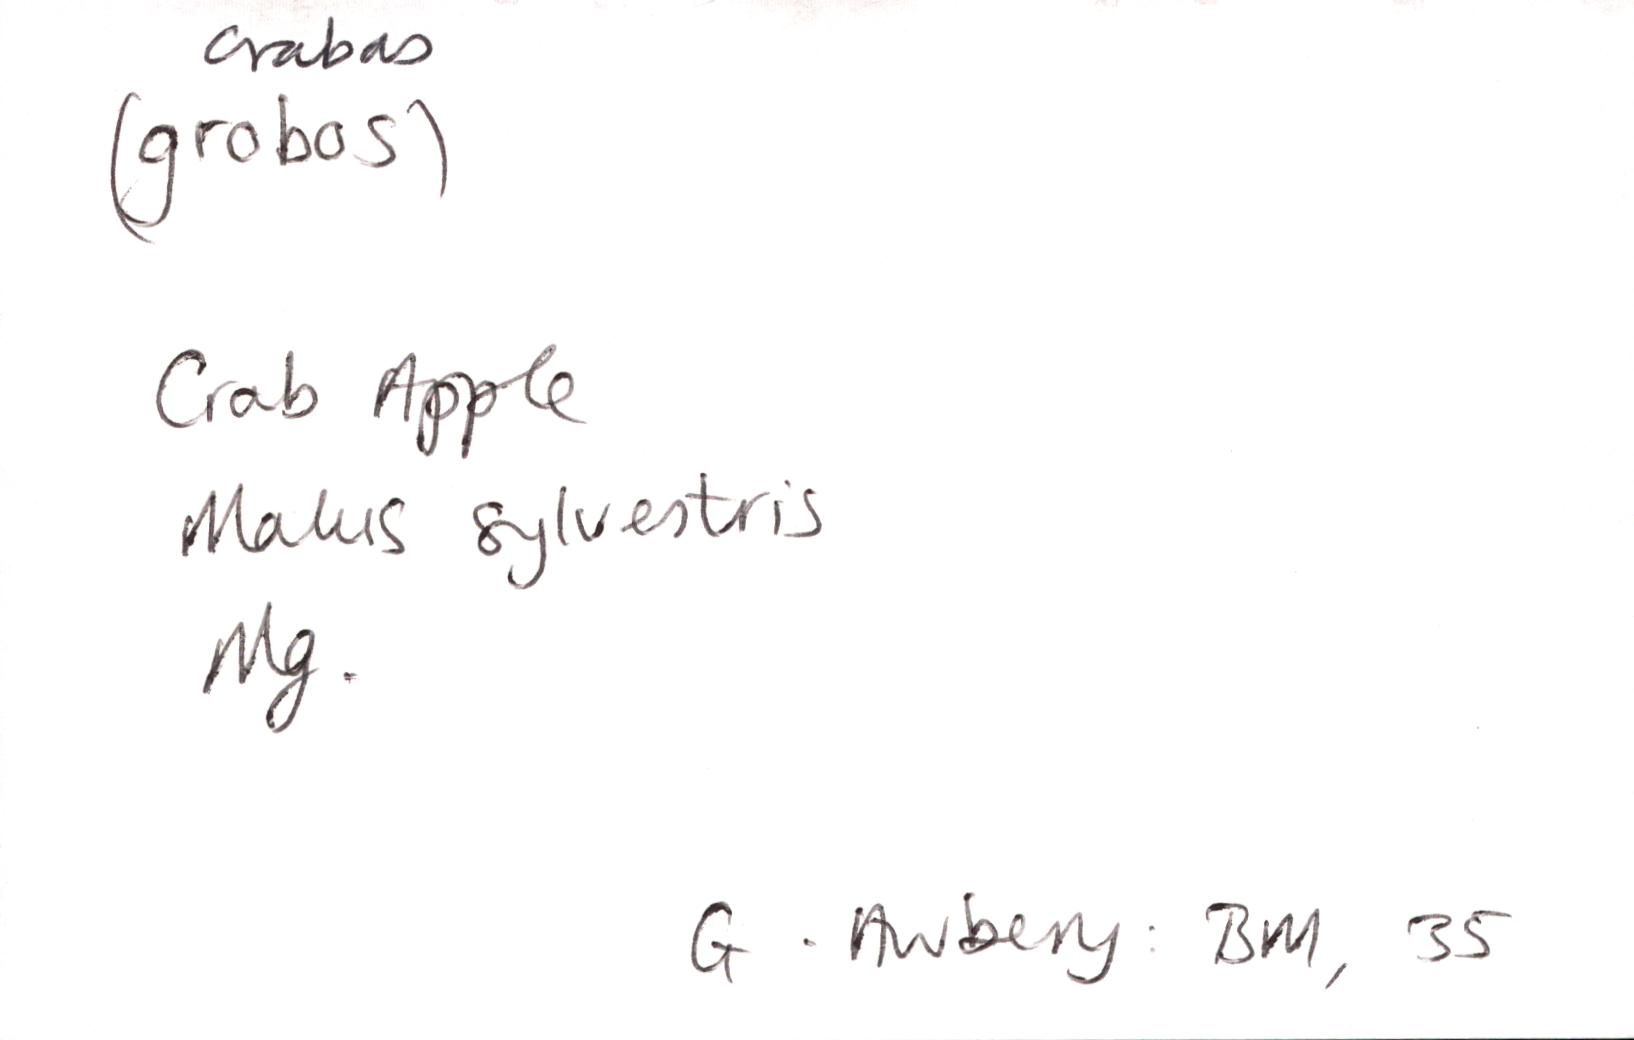 crabas
(grobos)
Crab Apple
Malus sylvestris
Mg.
G. Awbery: BM, 35